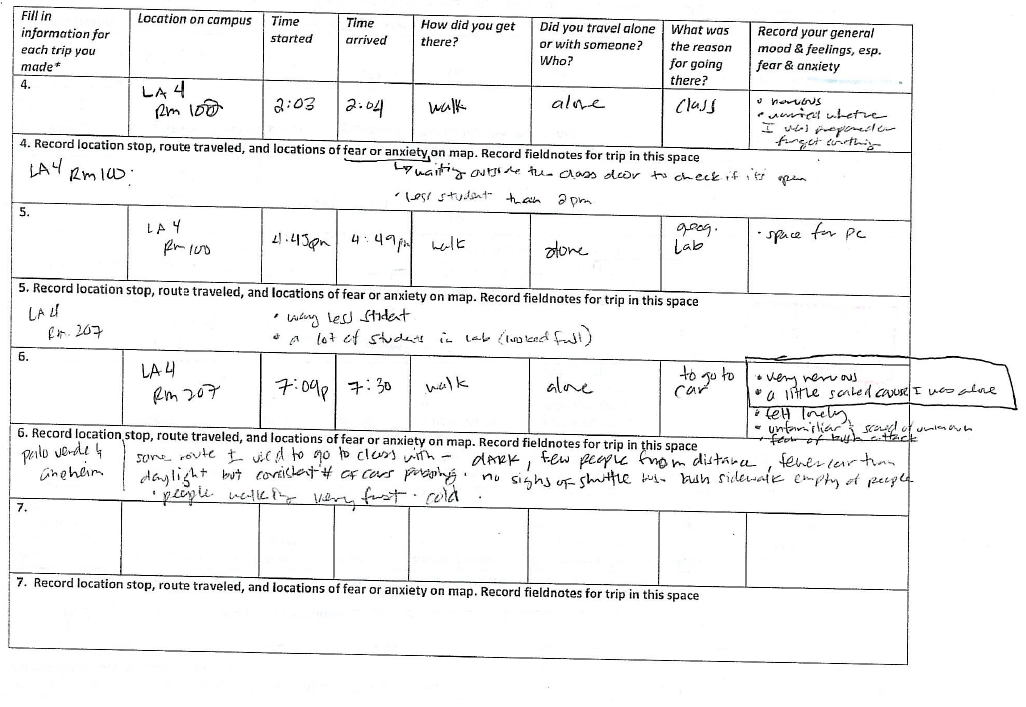 Fill in information for each trip you made*
Location on campus
Time started
Time arrived
How did you get there?
Did you travel alone or with someone? Who?
What was the reason for going there?
Record your general mood & feelings, esp. fear & anxiety
4.
LA 4
Rm 100
2:03
2:04
walk
alone
class
• nervous
• worried whether
I was prepared or
forgot anything
4. Record location stop, route traveled, and locations of fear or anxiety on map. Record fieldnotes for trip in this space
LA4 Rm 100:
waiting outside the class door to check if it's open
• less student than 2pm
5.
LA 4
Rm 100
4:45pm
4:49pm
walk
alone
geog.
Lab
• space for PC
5. Record location stop, route traveled, and locations of fear or anxiety on map. Record fieldnotes for trip in this space
LA 4
Rm. 207
• way less student
• a lot of students in lab (looked full)
6.
LA 4
Rm 207
7:09p
7:30
walk
alone
to go to
car
• very nervous
• a little scared cause I was alone
• felt lonely
• unfamiliar & scared of unknown
• fear of bush attack
6. Record location stop, route traveled, and locations of fear or anxiety on map. Record fieldnotes for trip in this space
palo verde &
aneheim
same route I used to go to class with - DARK, few people from distance, fewer car than
daylight but consistent # of cars passing. no signs of shuttle bus. bush sidewalk empty of people
• people walking very fast. cold.
7.
7. Record location stop, route traveled, and locations of fear or anxiety on map. Record fieldnotes for trip in this space